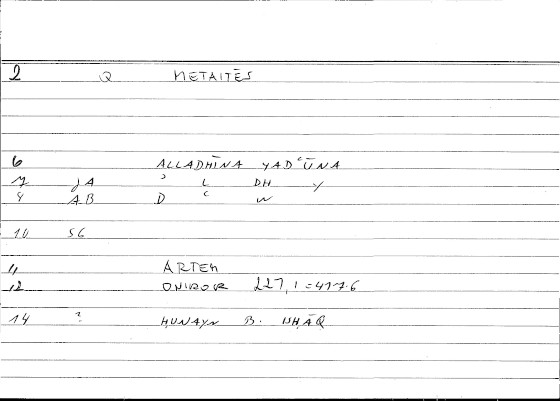 2 Q METAITĒS
6 ALLADHĪNA YADʿŪNA
7 JA ʾ L DH Y
8 AB D ʿ W
10 SG
11 ARTEM
12 ONIROCR 227,1 = 417.6
14 ? ḤUNAYN B. ISḤĀQ